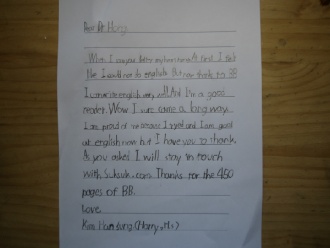 Dear Dr Hong
When I saw your letter my heart At first I felt
like I could not do english. But now thanks to BB
I can write english very well! And I'm a good
reader. Wow I sure came a long way.
I am proud of me because I tried and I am good
at english now but I have you to thank.
As you asked I will stay in touch
with Suksuk.com. Thanks for the 450
pages of BB.
Love
Kim